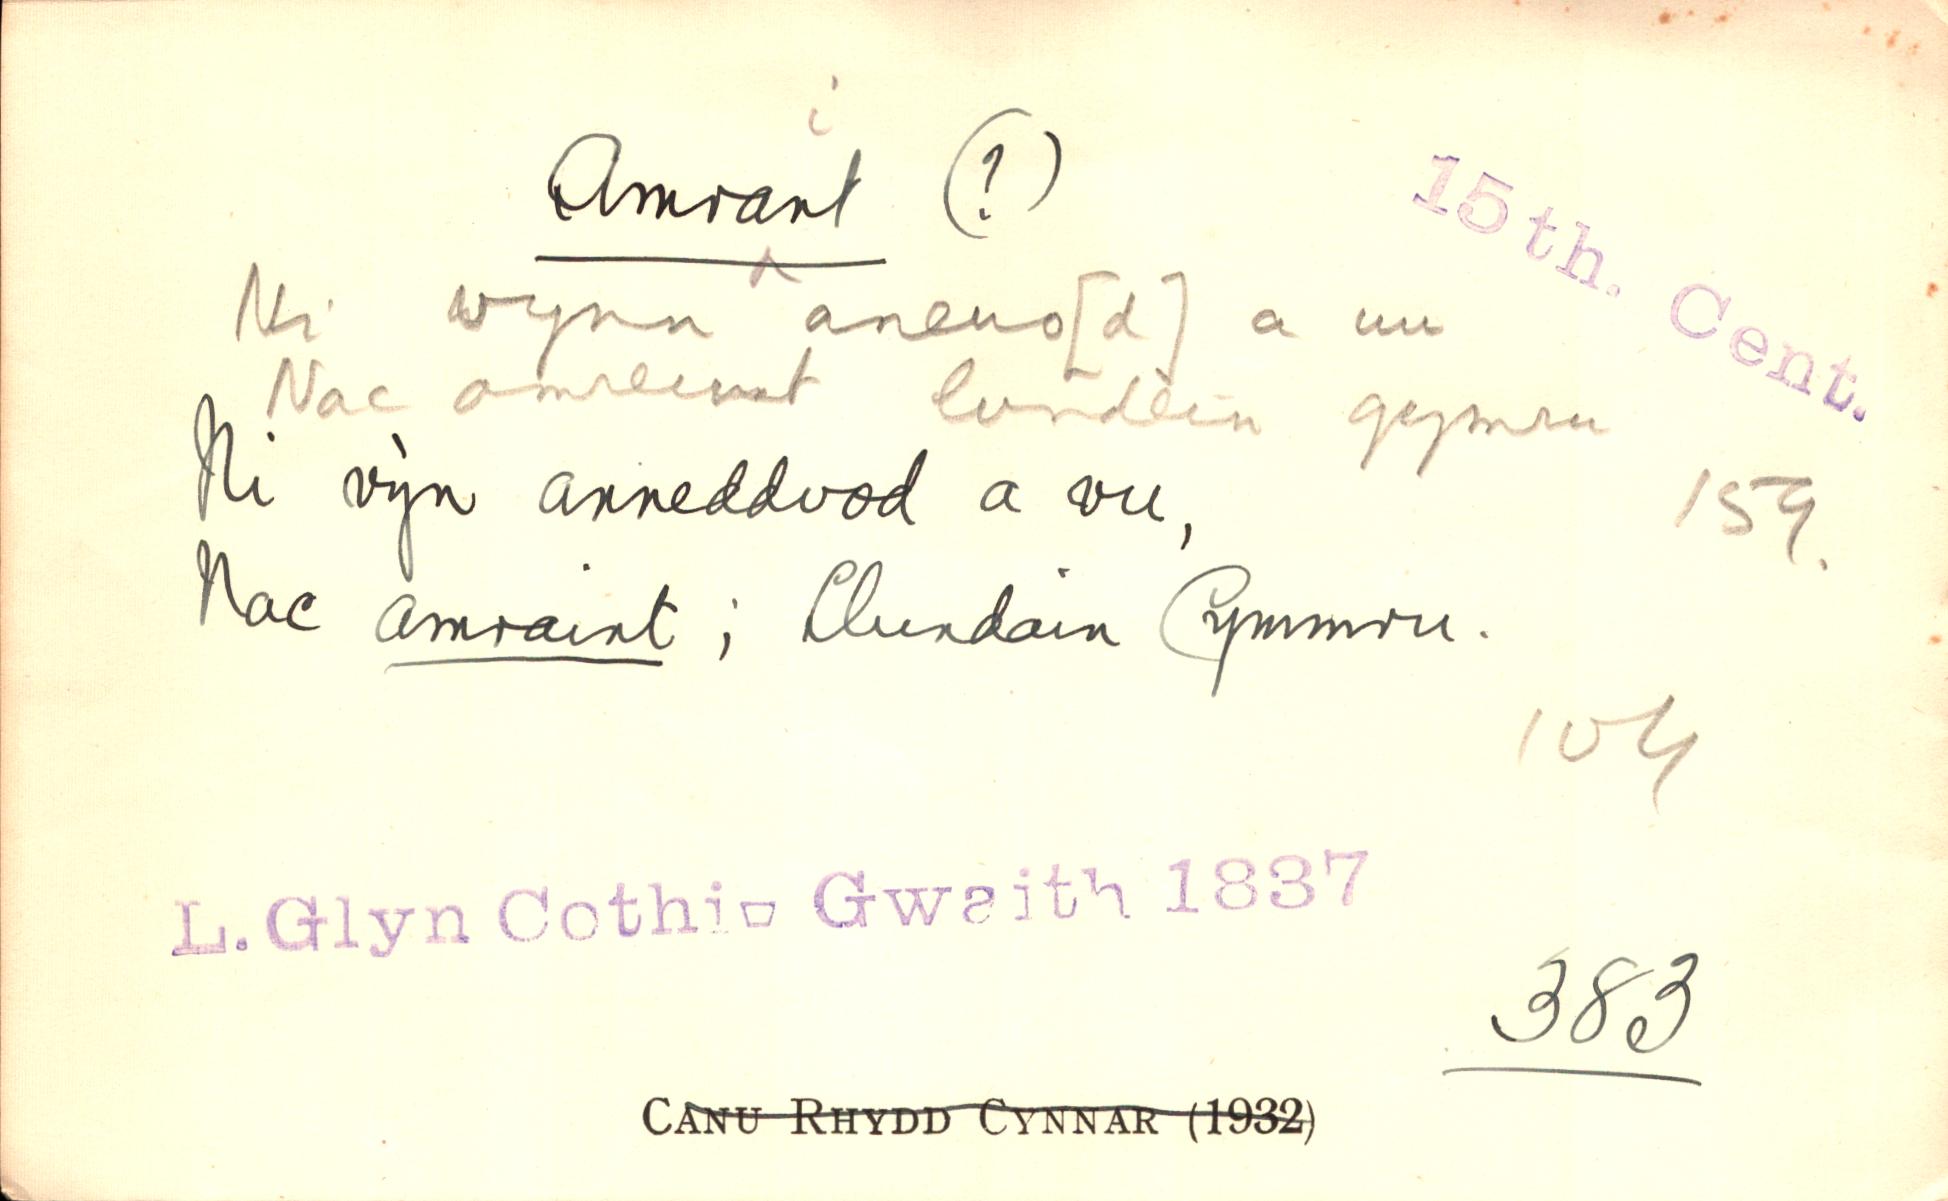 i
Amrant (?)
15th. Cent.
Ni wynn aneuo[d] a uu
Nac amreint lundein gymru
Ni vỳn anneddvod a vu, 159.
Nac amraint; Llundain Cymmru.
104
L. Glyn Cothi Gwaith 1837
383
CANU RHYDD CYNNAR (1932)